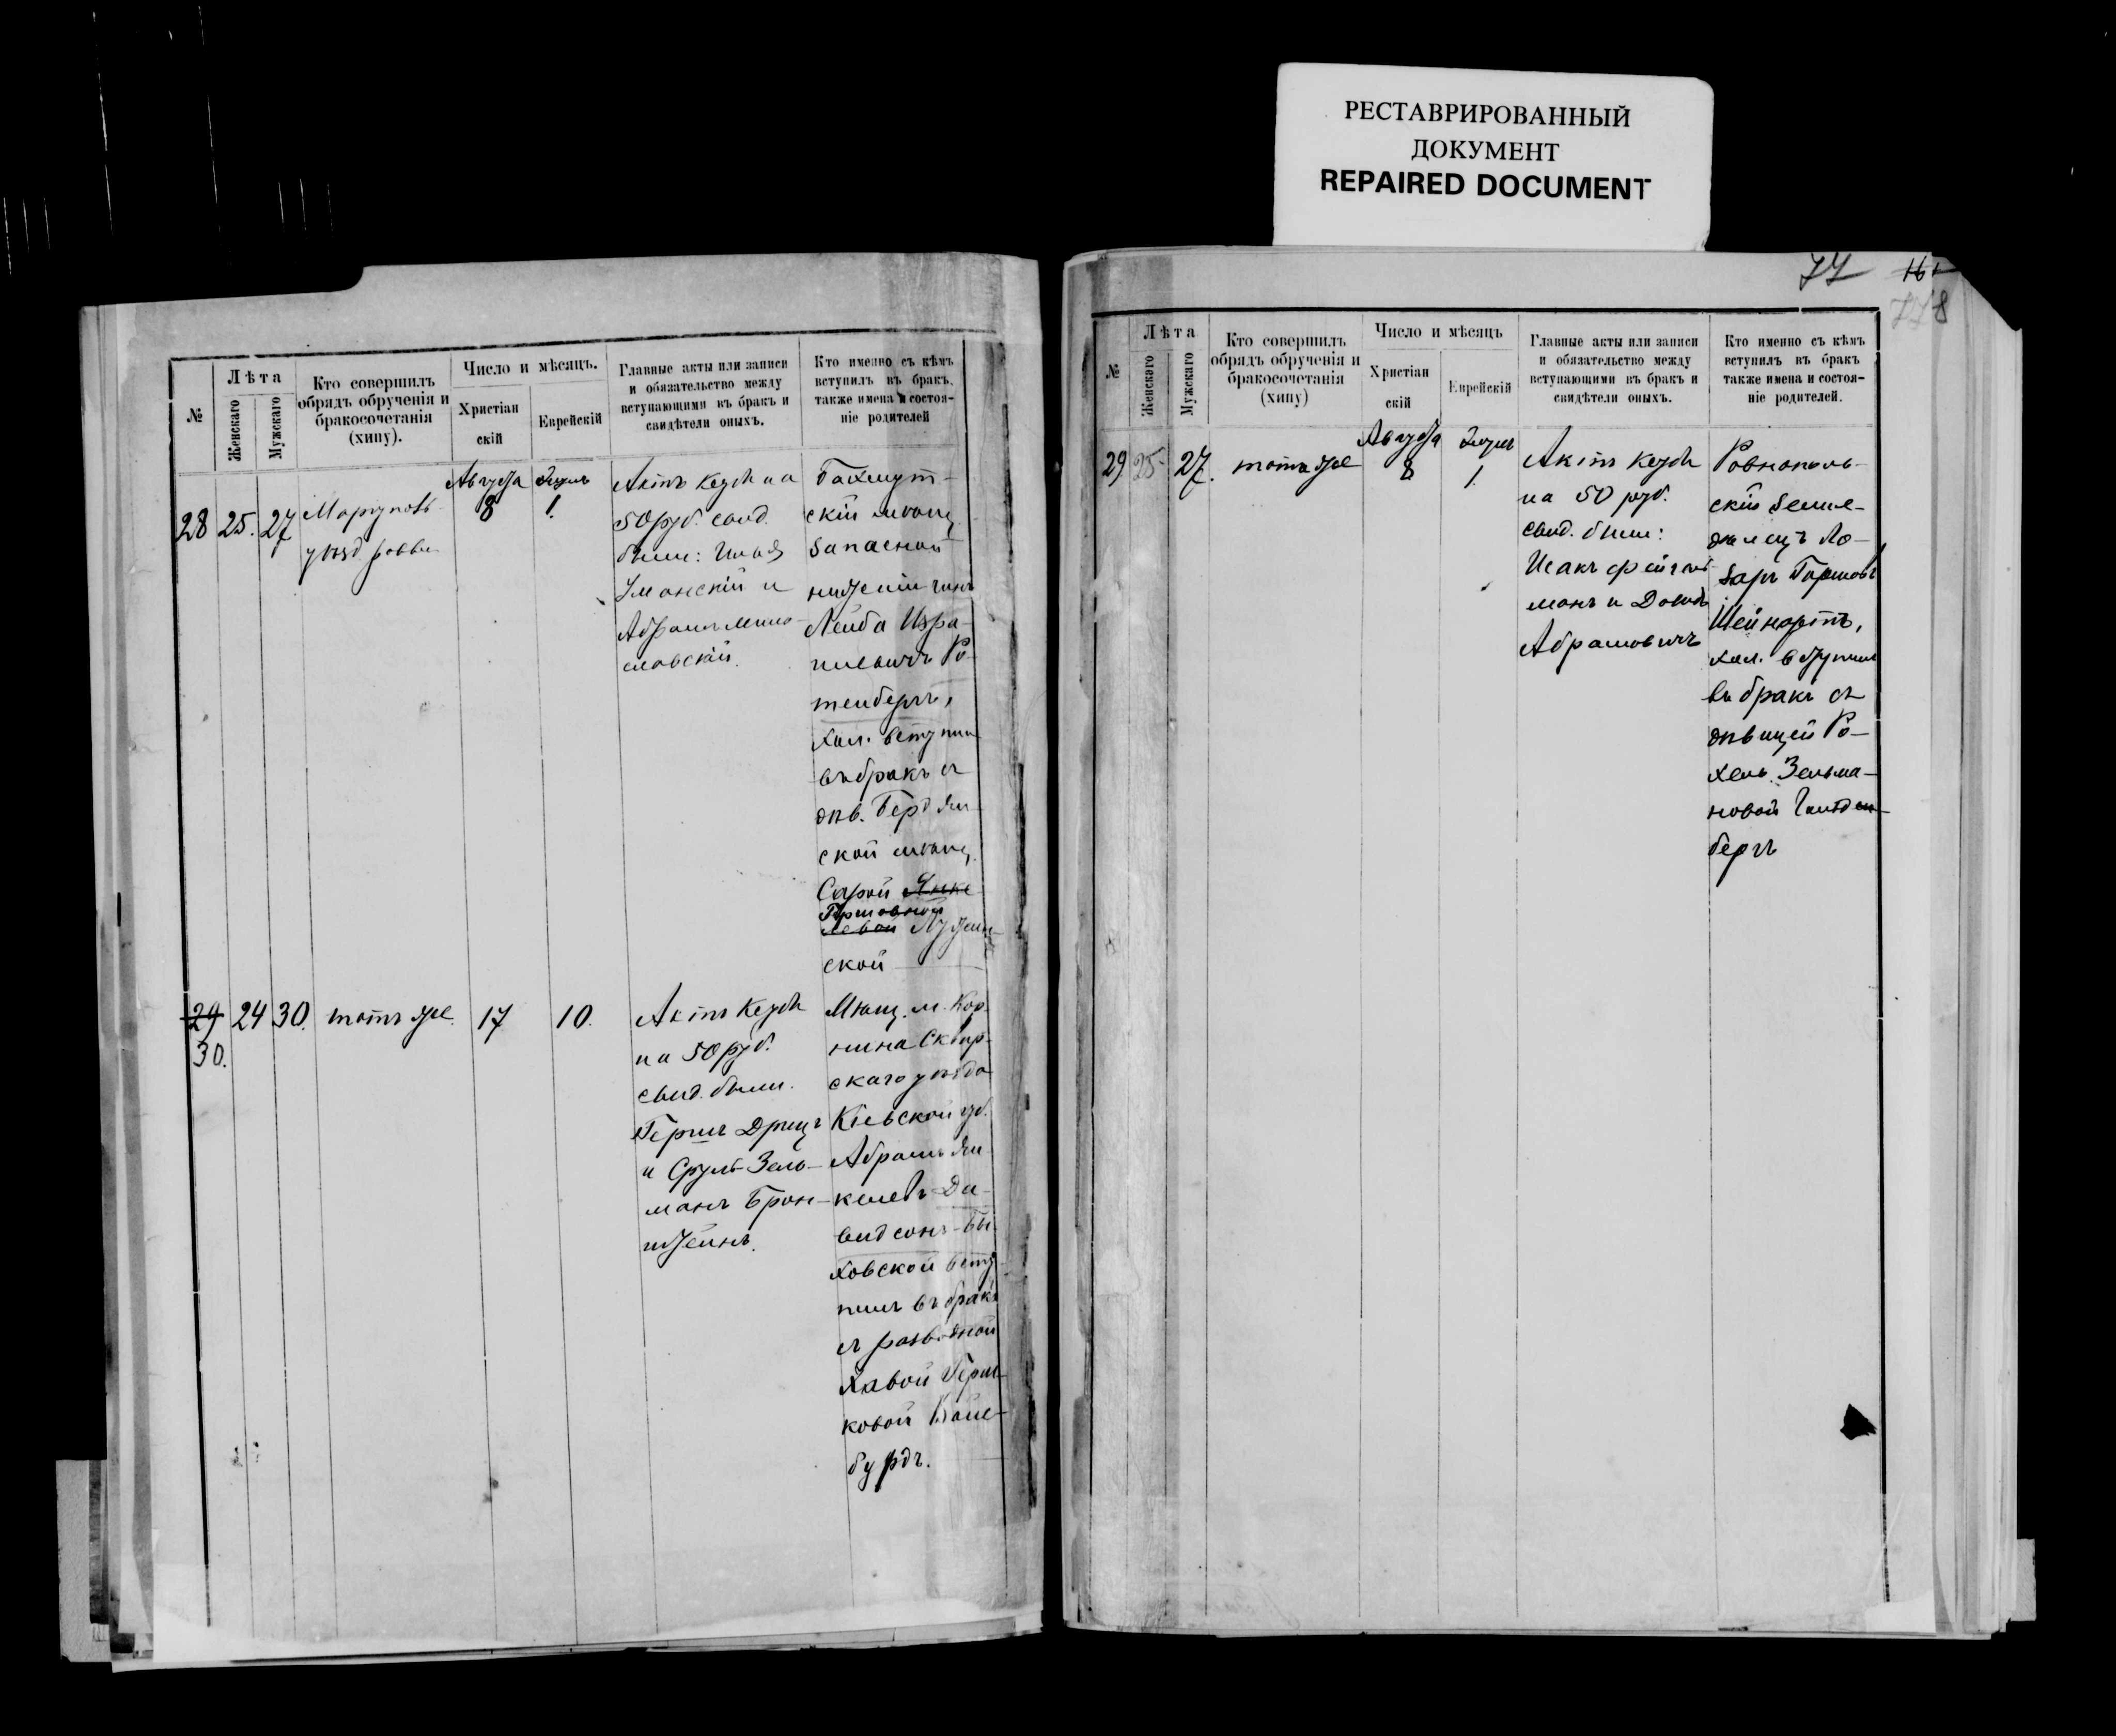 РЕСТАВРИРОВАННЫЙ
ДОКУМЕНТ
REPAIRED DOCUMENT
№
Лѣта
Женскаго
Мужскаго
Кто совершилъ
обрядъ обрученія и
бракосочетанія
(хипу).
Число и мѣсяцъ.
Христіан
скій
Еврейскій
Главные акты или записи
и обязательство между
вступающими въ бракъ и
свидѣтели оныхъ.
Кто именно съ кѣмъ
вступилъ въ бракъ,
также имена и состоя-
ніе родителей
28
25.
27
уѣзд. равви
Августа
8
1.
Актъ Кезуба на
50 руб. свид.
были: Илья
Уманскій и
Абрамъ
славскій.
Бахмут-
скій мѣщ.
запасной
Лейба Изра-
илевичъ Ро-
тенбергъ,
хол. вступил
въ бракъ съ
дѣв. Бердян-
ской мѣщ.
Сарой Янке
Гершовной
левой
ской
29
30.
24
30.
тотъ же.
17
10.
Актъ Кезуба
на 50 руб.
свид. были.
Гершъ Дрицъ
и Сруль-Зель-
манъ Брон-
штейнъ.
Мѣщ. м. Кор-
нина Сквир-
скаго уѣзда
Кіевской губ.
Абрамъ Ян-
келевъ Да-
видсонъ-Бы-
ховской всту
пилъ въ бракъ
съ разводной
Хавой Герш-
ковой Вайс-
бурдъ.
77
16
778
№
Лѣта
Женскаго
Мужскаго
Кто совершилъ
обрядъ обрученія и
бракосочетанія
(хипу)
Число и мѣсяцъ
Христіан
скій
Еврейскій
Главные акты или записи
и обязательство между
вступающими въ бракъ и
свидѣтели оныхъ.
Кто именно съ кѣмъ
вступилъ въ бракъ
также имена и состоя-
ніе родителей.
29
25
27.
тотъ же
Августа
8
1.
Актъ Кезуба
на 50 руб.
свид. были:
Исакъ Фейгель-
манъ и Давидъ
Абрамовичъ
Ровнополь-
скій земле-
дѣлецъ Ла-
заръ Гершовъ
Шейнортъ,
хол. вступилъ
въ бракъ съ
дѣвицей Ро-
хель Зельма-
новой Гольден-
бергъ